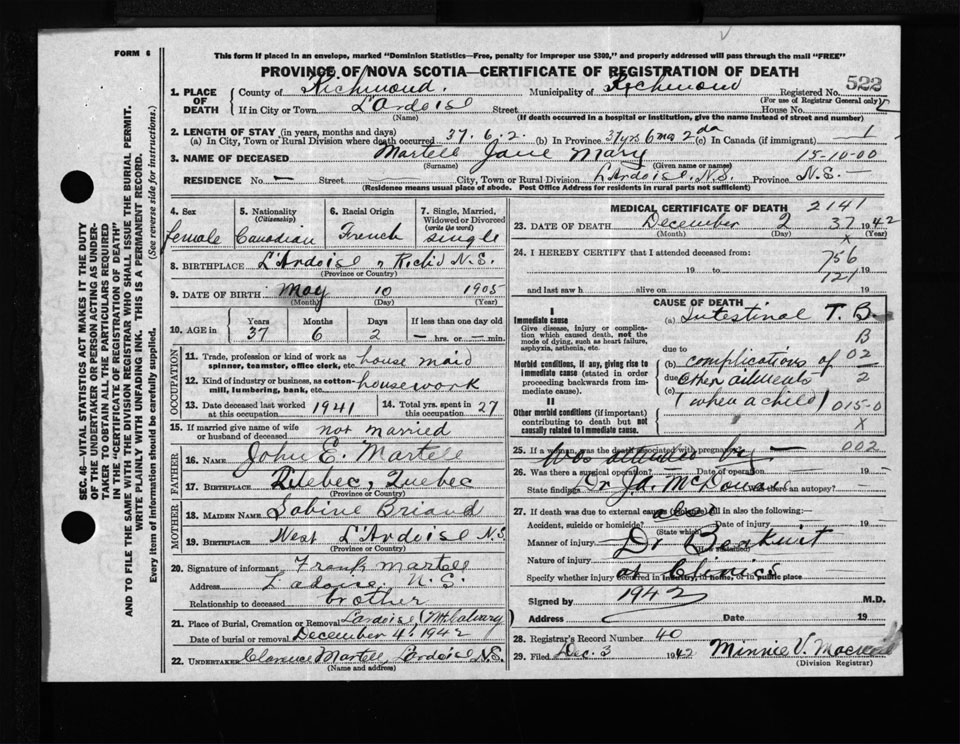 FORM 6
This form if placed in an envelope, marked "Dominion Statistics—Free, penalty for improper use $300," and properly addressed will pass through the mail "FREE"
PROVINCE OF NOVA SCOTIA—CERTIFICATE OF REGISTRATION OF DEATH
SEC. 46—VITAL STATISTICS ACT MAKES IT THE DUTY
OF THE UNDERTAKER OR PERSON ACTING AS UNDER-
TAKER TO OBTAIN ALL THE PARTICULARS REQUIRED
IN THE "CERTIFICATE OF REGISTRATION OF DEATH"
AND TO FILE THE SAME WITH THE DIVISION REGISTRAR WHO SHALL ISSUE THE BURIAL PERMIT.
WRITE PLAINLY WITH UNFADING INK. THIS IS A PERMANENT RECORD.
Every item of information should be carefully supplied. (See reverse side for instructions.)
1. PLACE OF DEATH County of Richmond. Municipality of Richmond Registered No. 522
(For use of Registrar General only)
If in City or Town L'Ardoise Street House No.
(Name) (If death occurred in a hospital or institution, give the name instead of street and number)
2. LENGTH OF STAY (in years, months and days)
(a) In City, Town or Rural Division where death occurred 37. 6. 2. (b) In Province 37 yrs 6 mos 2 da (c) In Canada (if immigrant) 1
3. NAME OF DECEASED Martell Jane Mary 15-10-00
(Surname) (Given name or names)
RESIDENCE No. — Street City, Town or Rural Division L'Ardoise, N.S. Province N.S. —
(Residence means usual place of abode. Post Office Address for residents in rural parts not sufficient)
4. Sex female
5. Nationality (Citizenship) Canadian
6. Racial Origin French
7. Single, Married, Widowed or Divorced (write the word) single
8. BIRTHPLACE L'Ardoise N.S.
(Province or Country)
9. DATE OF BIRTH May 10 1905
(Month) (Day) (Year)
10. AGE in Years 37 Months 6 Days 2 If less than one day
— hrs. or — min.
OCCUPATION
11. Trade, profession or kind of work as spinner, teamster, office clerk, etc. house maid
12. Kind of industry or business, as cotton-mill, lumbering, bank, etc. housework
13. Date deceased last worked at this occupation 1941
14. Total yrs. spent in this occupation 27
15. If married give name of wife or husband of deceased not married
FATHER
16. NAME John E. Martell
17. BIRTHPLACE Quebec, Quebec
(Province or Country)
MOTHER
18. MAIDEN NAME Sabine Briand
19. BIRTHPLACE West L'Ardoise N.S.
(Province or Country)
20. Signature of informant Frank Martell
Address L'Ardoise N.S.
Relationship to deceased brother
21. Place of Burial, Cremation or Removal Lardoise Mt. Calvary
Date of burial or removal December 4, 1942
22. UNDERTAKER Clarence Martell, Lardoise N.S.
(Name and address)
MEDICAL CERTIFICATE OF DEATH 2141
23. DATE OF DEATH December 2 37 1942
(Month) (Day) x (Year)
24. I HEREBY CERTIFY that I attended deceased from: 756
19 to 19
and last saw h alive on 121 19
CAUSE OF DEATH
I
Immediate cause (a) Intestinal T.B.
Give disease, injury or complication which caused death, not the mode of dying, such as heart failure, asphyxia, asthenia, etc.
due to B
Morbid conditions, if any, giving rise to immediate cause (stated in order proceeding backwards from immediate cause).
(b) complications of 02
due to other ailments 2
(c) (when a child) 015-0
II
Other morbid conditions (if important) contributing to death but not causally related to immediate cause. x
25. If a woman, was the death associated with pregnancy? 002
Was attended by
26. Was there a surgical operation? — Date of operation — 19
State findings Was there an autopsy?
Dr. J.A. McDonald
27. If death was due to external causes (violence) fill in also the following:—
also
Accident, suicide or homicide? Date of injury 19
(State which)
Manner of injury Dr
(How sustained)
Nature of injury at Clinics
Specify whether injury occurred in industry, in home, or in public place
1942
Signed by M.D.
Address Date 19
28. Registrar's Record Number 40
29. Filed Dec. 3 1942 Minnie V.
(Division Registrar)